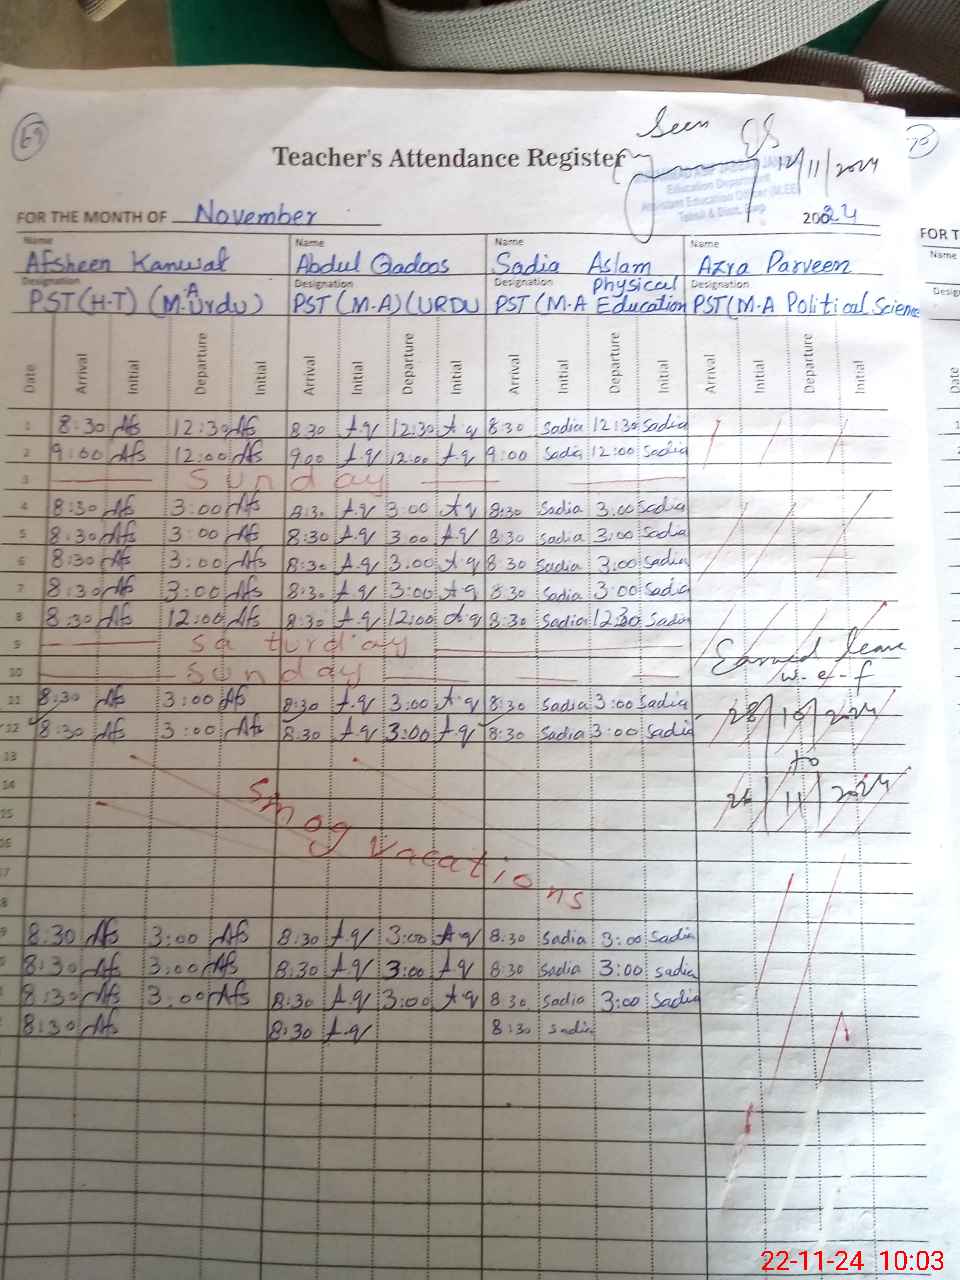 69
Seen
Teacher's Attendance Register
12/11/2024
Education Department
FOR THE MONTH OF November 2024
Name Name Name Name
Afsheen Kanwal Abdul Qadoos Sadia Aslam Azra Parveen
Designation Designation Designation Designation
PST(H-T) (M.A Urdu) PST (M-A)(URDU PST (M-A Physical Education PST(M-A Political Science
Date Arrival Initial Departure Initial Arrival Initial Departure Initial Arrival Initial Departure Initial Arrival Initial Departure Initial
1 8:30 Afs 12:30 Afs 8:30 A.q 12:30 A q 8:30 Sadia 12:30 Sadia
2 9:00 Afs 12:00 Afs 9:00 A.q 12:00 A.q 9:00 Sadia 12:00 Sadia
3 Sunday
4 8:30 Afs 3:00 Afs 8:30 A.q 3:00 A.q 8:30 Sadia 3:00 Sadia
5 8:30 Afs 3:00 Afs 8:30 A.q 3:00 A.q 8:30 Sadia 3:00 Sadia
6 8:30 Afs 3:00 Afs 8:30 A.q 3:00 A.q 8:30 Sadia 3:00 Sadia
7 8:30 Afs 3:00 Afs 8:30 A.q 3:00 A q 8:30 Sadia 3:00 Sadia
8 8:30 Afs 12:00 Afs 8:30 A.q 12:00 A.q 8:30 Sadia 12:30 Sadia
9 Saturday
Earned leave
10 Sunday
w.e.f
11 8:30 Afs 3:00 Afs 8:30 A.q 3:00 A.q 8:30 Sadia 3:00 Sadia
28/10/2024
12 8:30 Afs 3:00 Afs 8:30 A.q 3:00 A.q 8:30 Sadia 3:00 Sadia
13 to
14
26/11/2024
15
Smog Vacations
8:30 Afs 3:00 Afs 8:30 A.q 3:00 A.q 8:30 Sadia 3:00 Sadia
8:30 Afs 3:00 Afs 8:30 A.q 3:00 A.q 8:30 Sadia 3:00 Sadia
8:30 Afs 3:00 Afs 8:30 A.q 3:00 A q 8:30 Sadia 3:00 Sadia
8:30 Afs 8:30 A.q 8:30 Sadia
FOR T
Name
Date
22-11-24 10:03